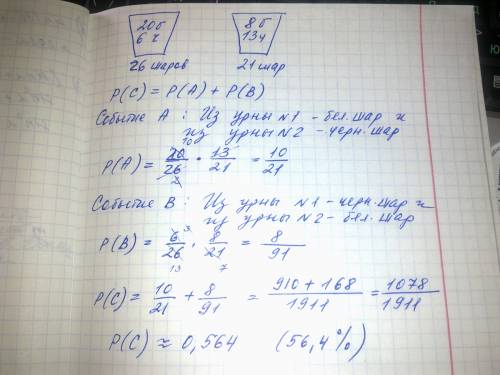 20б 8б
6ч 13ч
26 шаров 21 шар
P(C) = P(A) + P(B)
Событие A : Из урны №1 - бел. шар и
из урны №2 - черн. шар
P(A) = 20/26 · 13/21 = 10/21
10
2
Событие B : Из урны №1 - черн. шар и
из урны №2 - бел. шар
P(B) = 6/26 · 8/21 = 8/91
13 7
P(C) = 10/21 + 8/91 = 910 + 168/1911 = 1078/1911
P(C) ≈ 0,564 (56,4%)